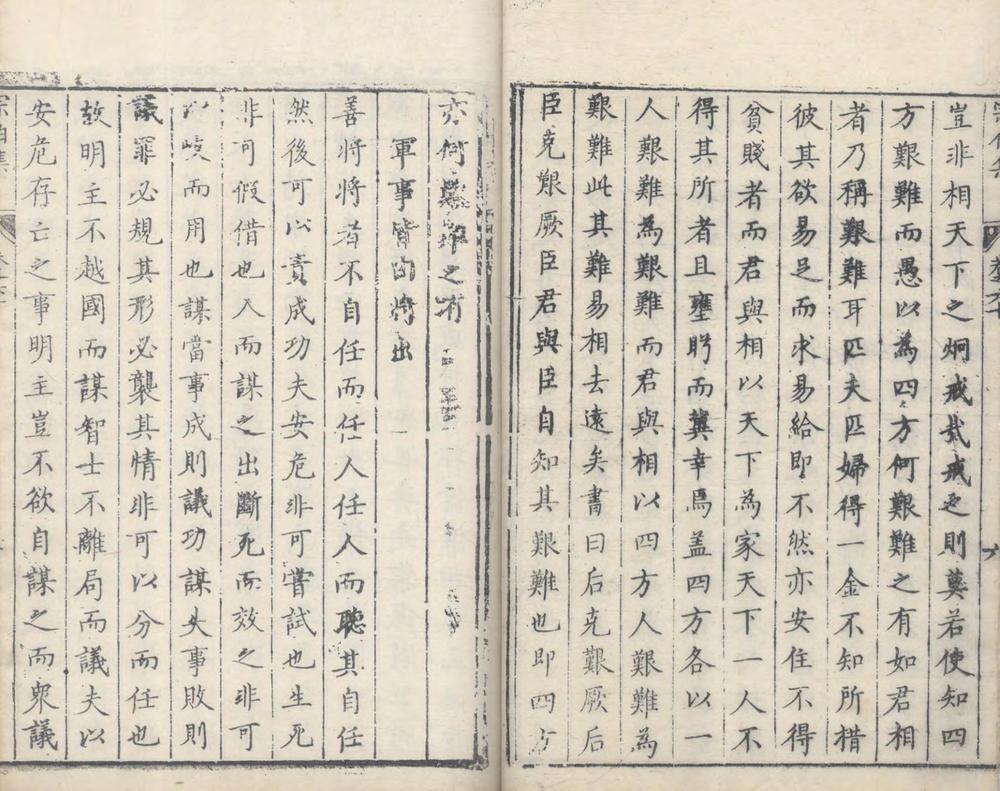 豈非相天下之炯戒哉戒之則莫若使知四
方艱難而愚以為四方何艱難之有如君相
者乃稱艱難耳匹夫匹婦得一金不知所措
彼其欲易足而求易給即不然亦安住不得
貧賤者而君與相以天下為家天下一人不
得其所者且壅盻而冀幸焉盖四方各以一
人艱難為艱難而君與相以四方人艱難為
艱難此其難易相去遠矣書曰后克艱厥后
臣克艱厥臣君與臣自知其艱難也即四方
亦何艱難之有
軍事皆由將出
善將將者不自任而任人任人而聽其自任
然後可以責成功夫安危非可嘗試也生死
非可假借也入而謀之出斷死而效之非可
以岐而用也謀當事成則議功謀失事敗則
議罪必規其形必襲其情非可以分而任也
故明主不越國而謀智士不離局而議夫以
安危存亡之事明主豈不欲自謀之而衆議
宗伯集